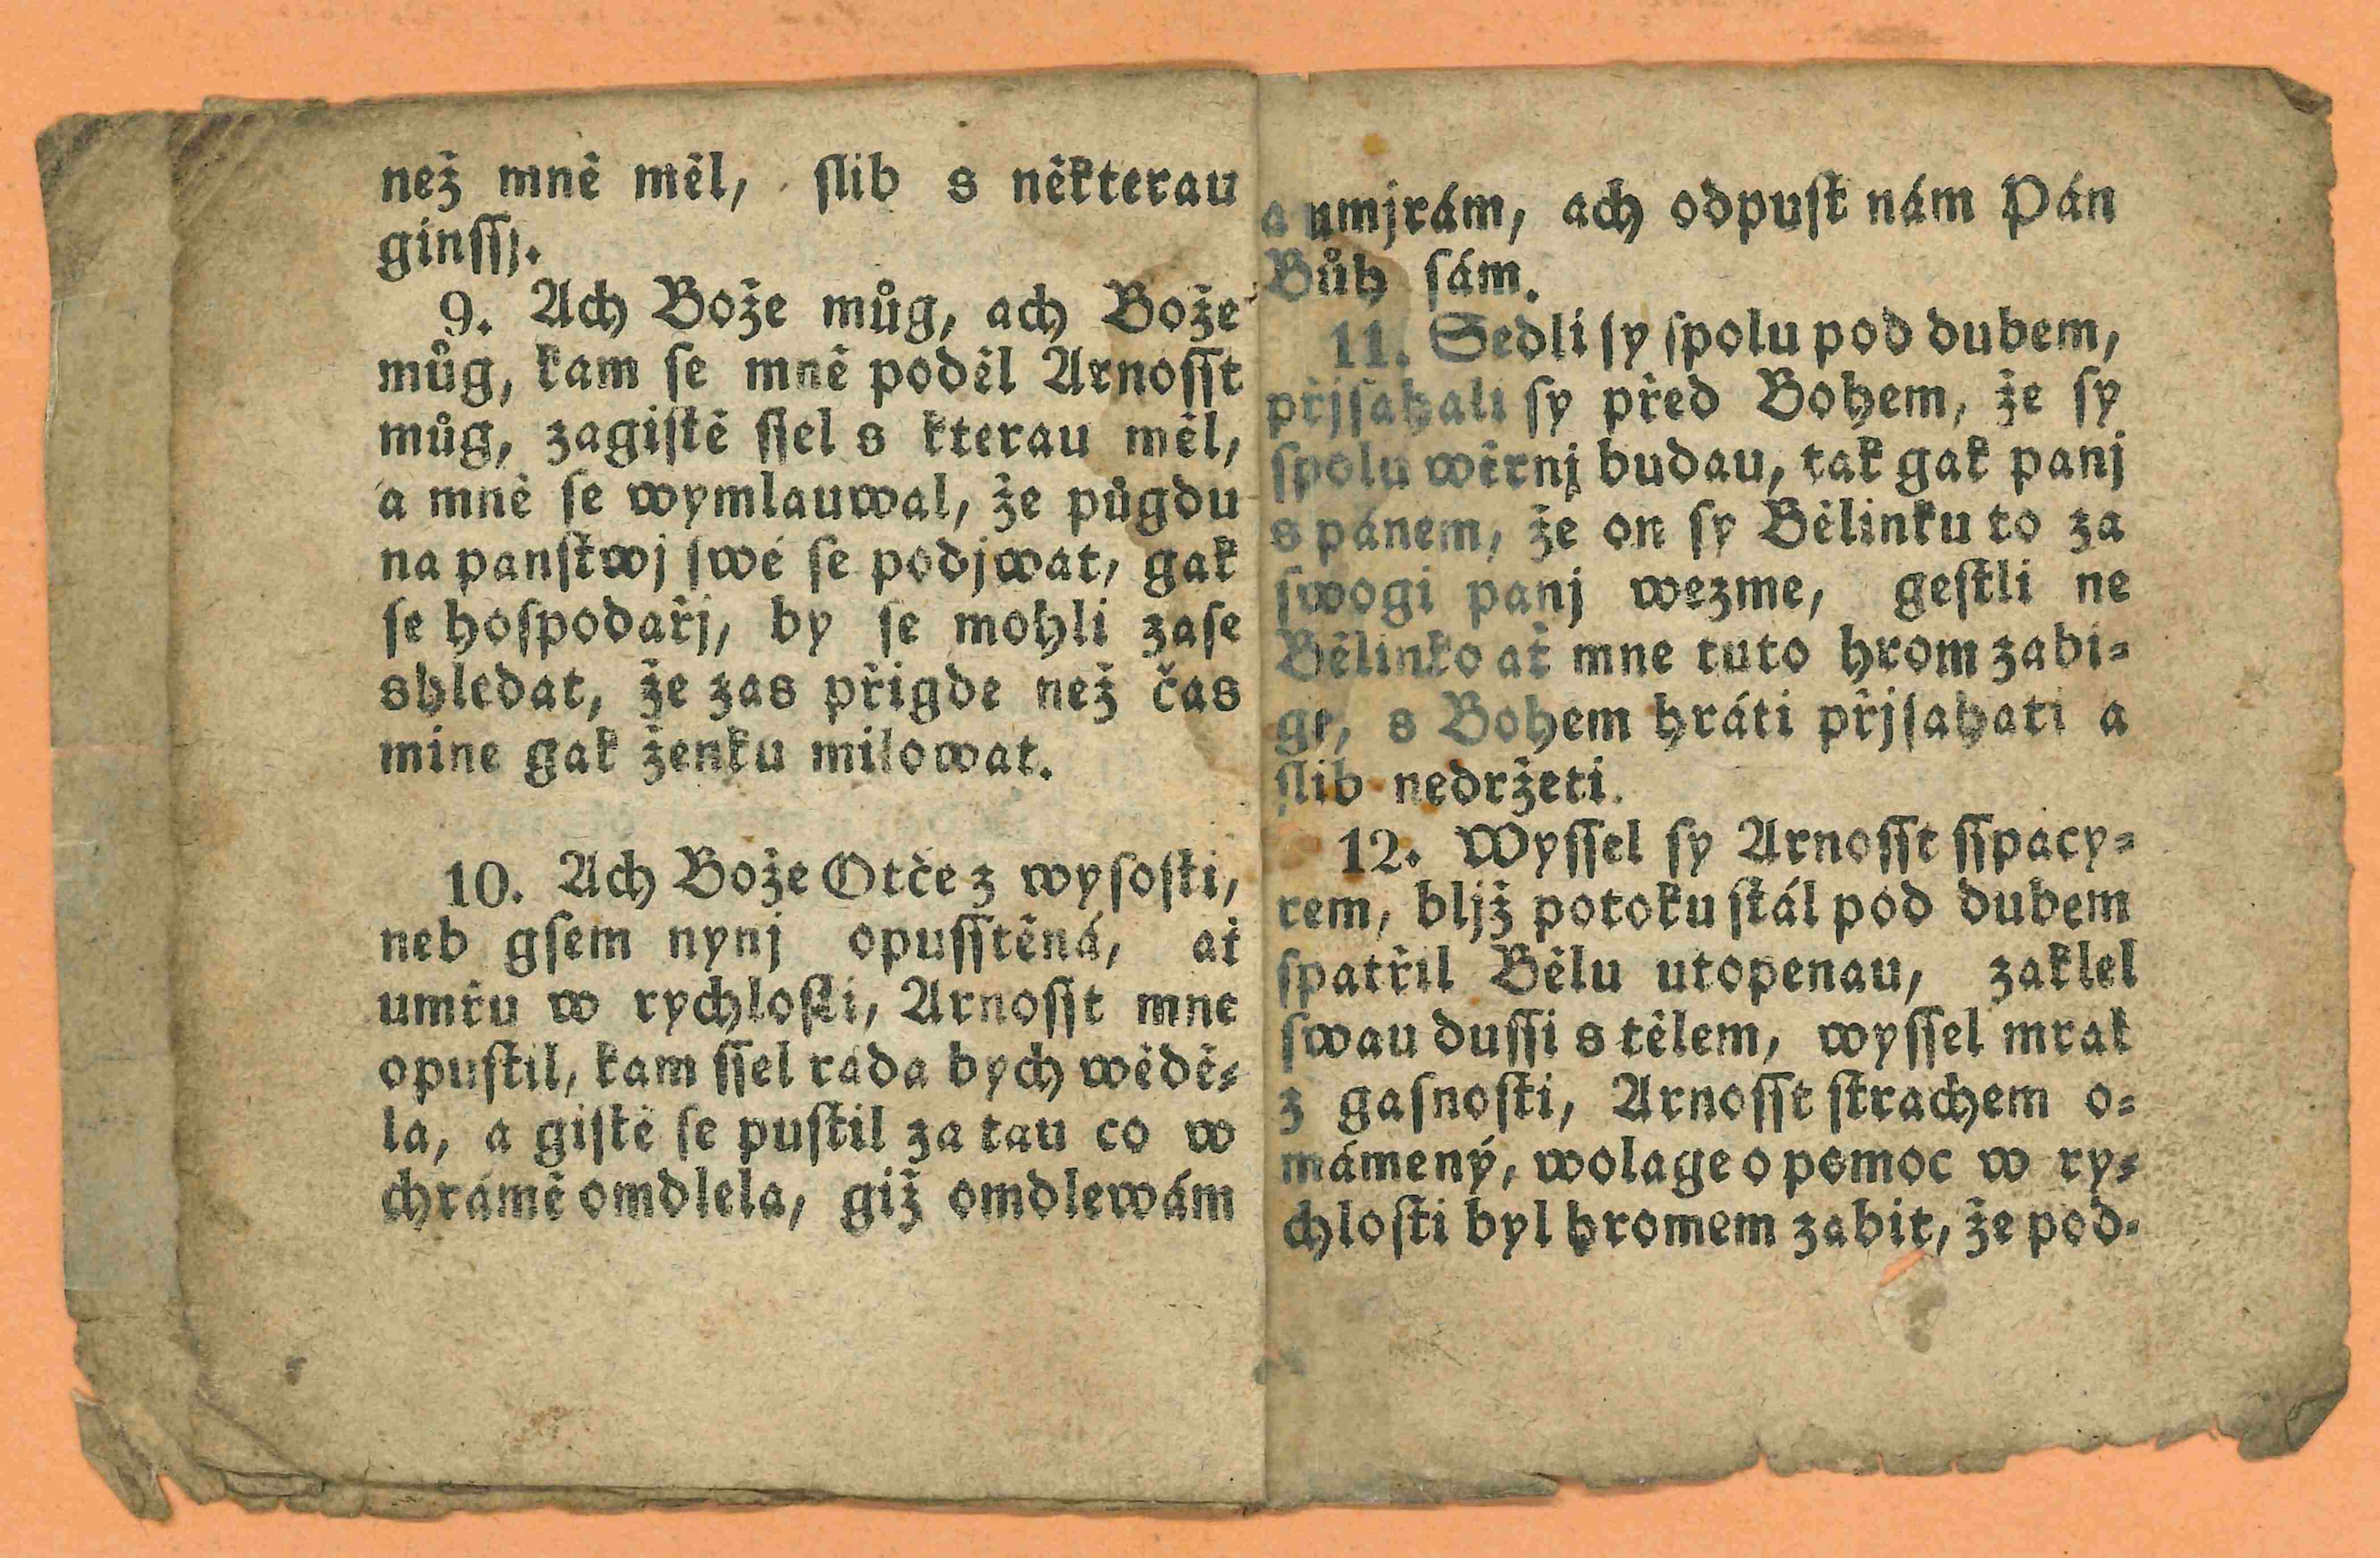 než mně měl, ſlib s některau
ginſſj.
9. Ach Bože můg, ach Bože
můg, kam ſe mně poděl Arnoſſt
můg, zagiſtě ſſel s kterau měl,
a mně ſe wymlauwal, že půgdu
na panſtwj ſwé ſe podjwat, gak
ſe hoſpodařj, by ſe mohli zaſe
shledat, že zas přigde než čas
mine gak ženku milowat.
10. Ach Bože Otče z wyſoſti,
neb gſem nynj opuſſtěná, ať
umřu w rychloſti, Arnoſſt mne
opuſtil, kam ſſel ráda bych wědě⸗
la, a giſtě ſe puſtil za tau co w
chrámě omdlela, giž omdlewám
a umjrám, ach odpuſť nám Pán
Bůh ſám.
11. Sedli ſy ſpolu pod dubem,
přjſahali ſy před Bohem, že ſy
ſpolu wěrnj budau, tak gak panj
s pánem, že on ſy Bělinku to za
ſwogi panj wezme, geſtli ne
Bělinko ať mne tuto hrom zabi⸗
ge, s Bohem hráti přjſahati a
ſlib nedržeti.
12. Wyſſel ſy Arnoſſt ſſpacy⸗
rem, bljž potoku ſtál pod dubem
ſpatřil Bělu utopenau, zaklel
ſwau duſſi s tělem, wyſſel mrak
z gaſnoſti, Arnoſſt ſtrachem o⸗
mámený, wolage o pomoc w ry⸗
chloſti byl hromem zabit, že pod⸗